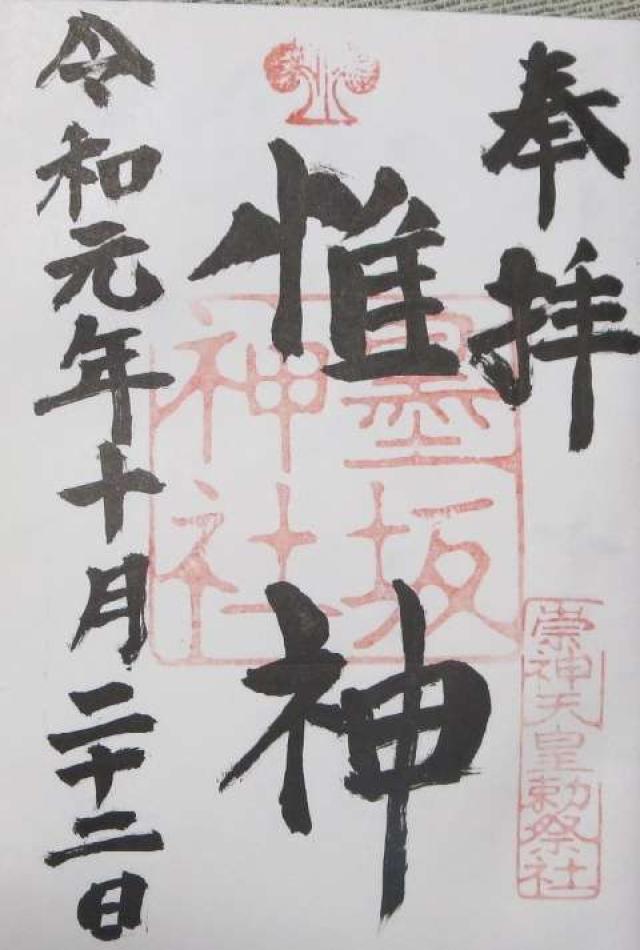 奉拝
崇神天皇勅祭社
惟神
墨坂
神社
令和元年十月二十二日